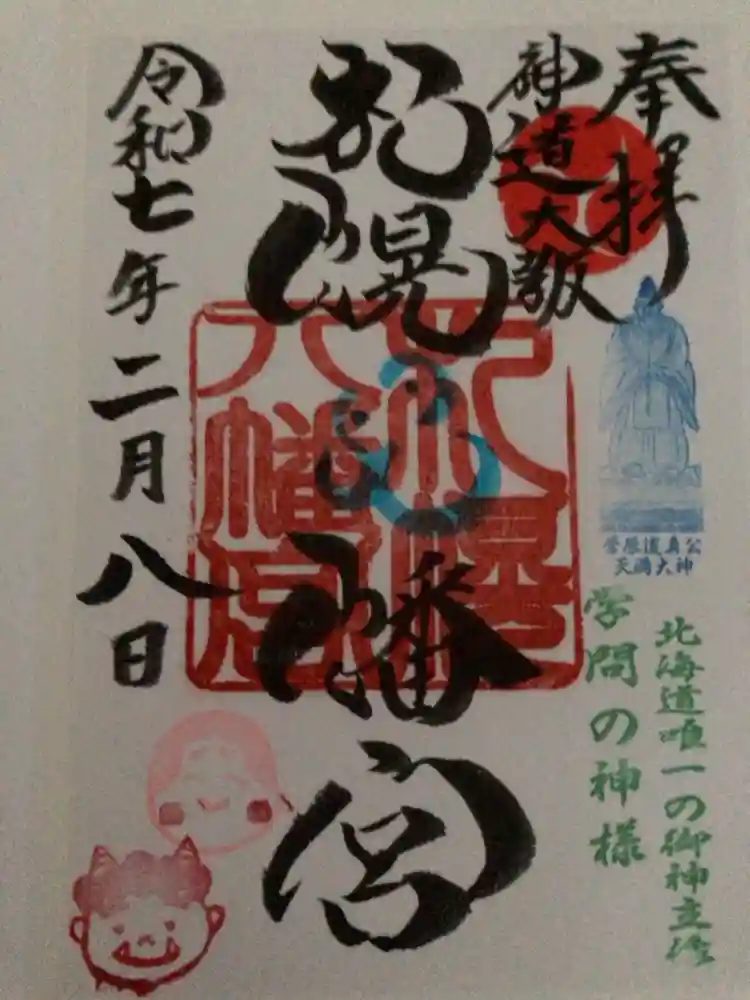 奉拝
神道大教
札幌八幡宮
令和七年二月八日
札幌
八幡宮
菅原道真公
天満大神
学問の神様
北海道唯一の御神立像